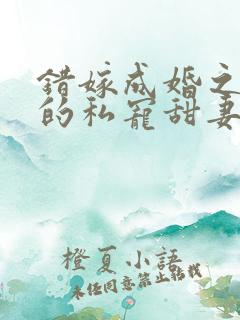 错嫁成婚之
的私宠甜妻
橙夏小语
未经同意禁止转载